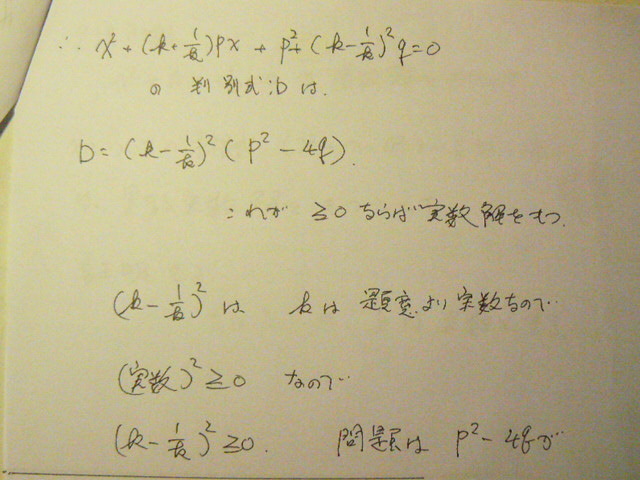 ∴ x²+(k+1/k)px + p²+(k-1/k)²q=0
の 判別式:Dは.
D=(k-1/k)²(p²-4q).
これが ≥0 ならば 実数解をもつ.
(k-1/k)² は kは 題意より実数なので
(実数)²≥0 なので
(k-1/k)²≥0. 問題は p²-4qが